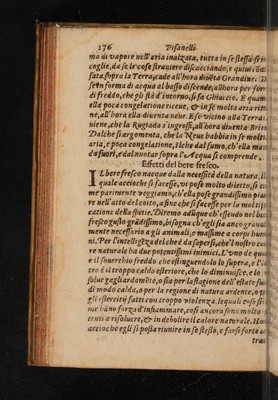 176 Pisanelli
ma di vapore nell'aria inalzata, tutta in se stessa si r
coglie, da se le cose straniere discacciando, e quiui cond
sata sopra la Terra; cade all'hora diuẽta Grandine. D
se in forma di acqua al basso discende, all'hora per forz
di freddo, che gli stà d'intorno, si fa Ghiaccio. E quan
ella poca congelatione riceue, & in se molta aria ritie
ne, all'hora ella diuenta neue. E se vicino alla Terra
uiene, che la Rugiada s'ingrossi, all'hora diuenta Brin
Dalche si argomenta, che la Neue habbia in se molta
aria, e poca congelatione, ilche dal fumo, ch'ella man
da fuori, e dal nuotar sopra l'Acqua si comprende.
Effetti del bere fresco.
IL bere fresco nacque dalla necessità della natura, l
quale acciòche si facesse, vi pose molto diletto, si co
me parimente veggiamo, ch'ella pose grandissimo piace
re nell'atto del coito, a fine che si facesse per la molti p
catione della spetie. Diremo adũque ch'essendo nel ber
fresco gusto grãdissimo, bisogna ch'egli sia ancora gran
mente necessario a gli animali, e massime a corpi huma
ni. Per l'intelligẽza del che è da sapersi, che'l nostro co
re naturale ha due potentissimi nimici. L'vno de qua
è il souerchio freddo che estinguendolo lo supera, e l'
tro è il troppo caldo esteriore, che lo diminuisce, e lo
solue gagliardamẽte, o sia per la stagion dell'estate fu
di modo calda, o per la regione di natura ardente, o p
gli essercitij fatti con troppo violenza, le quali cose si
me hãno forza d'infiammare, così ancora sono molto
tenti a risoluere, & in debolir il calore naturale. Ho
acciòche egli si posta riunire in se stesso, e farsi forte c
trae